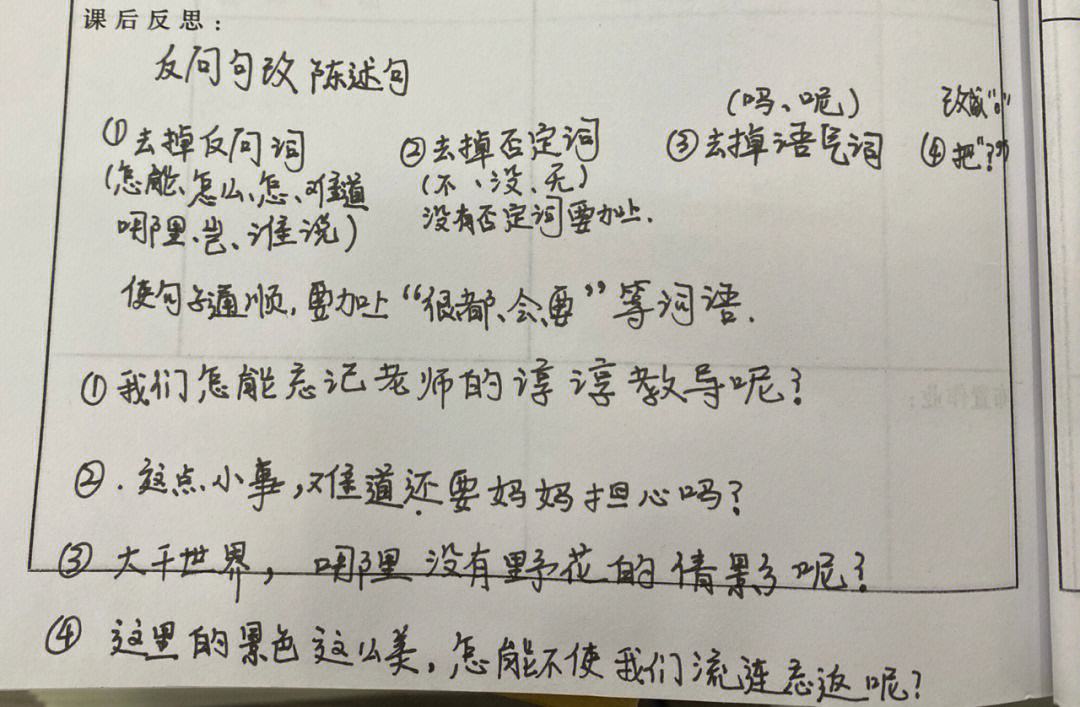 课后反思：
反问句改陈述句
①去掉反问词
(怎能、怎么、怎、难道
哪里、岂、谁说)
②去掉否定词
(不、没、无)
没有否定词要加上.
(吗、呢)
③去掉语气词
改成"。"
④把"?"
使句子通顺,要加上“很都、会要”等词语.
①我们怎能忘记老师的谆谆教导呢?
②.这点小事,难道还要妈妈担心吗?
③大千世界,哪里没有野花的倩影呢?
④这里的景色这么美,怎能不使我们流连忘返呢?